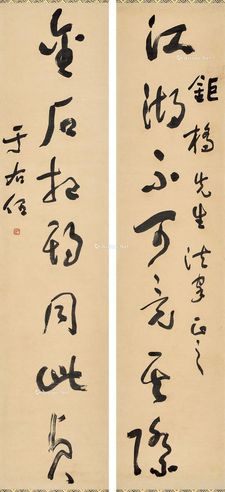 鉅橋先生法家正之
江湖不可竟其際
金石相期同此貞
于右任